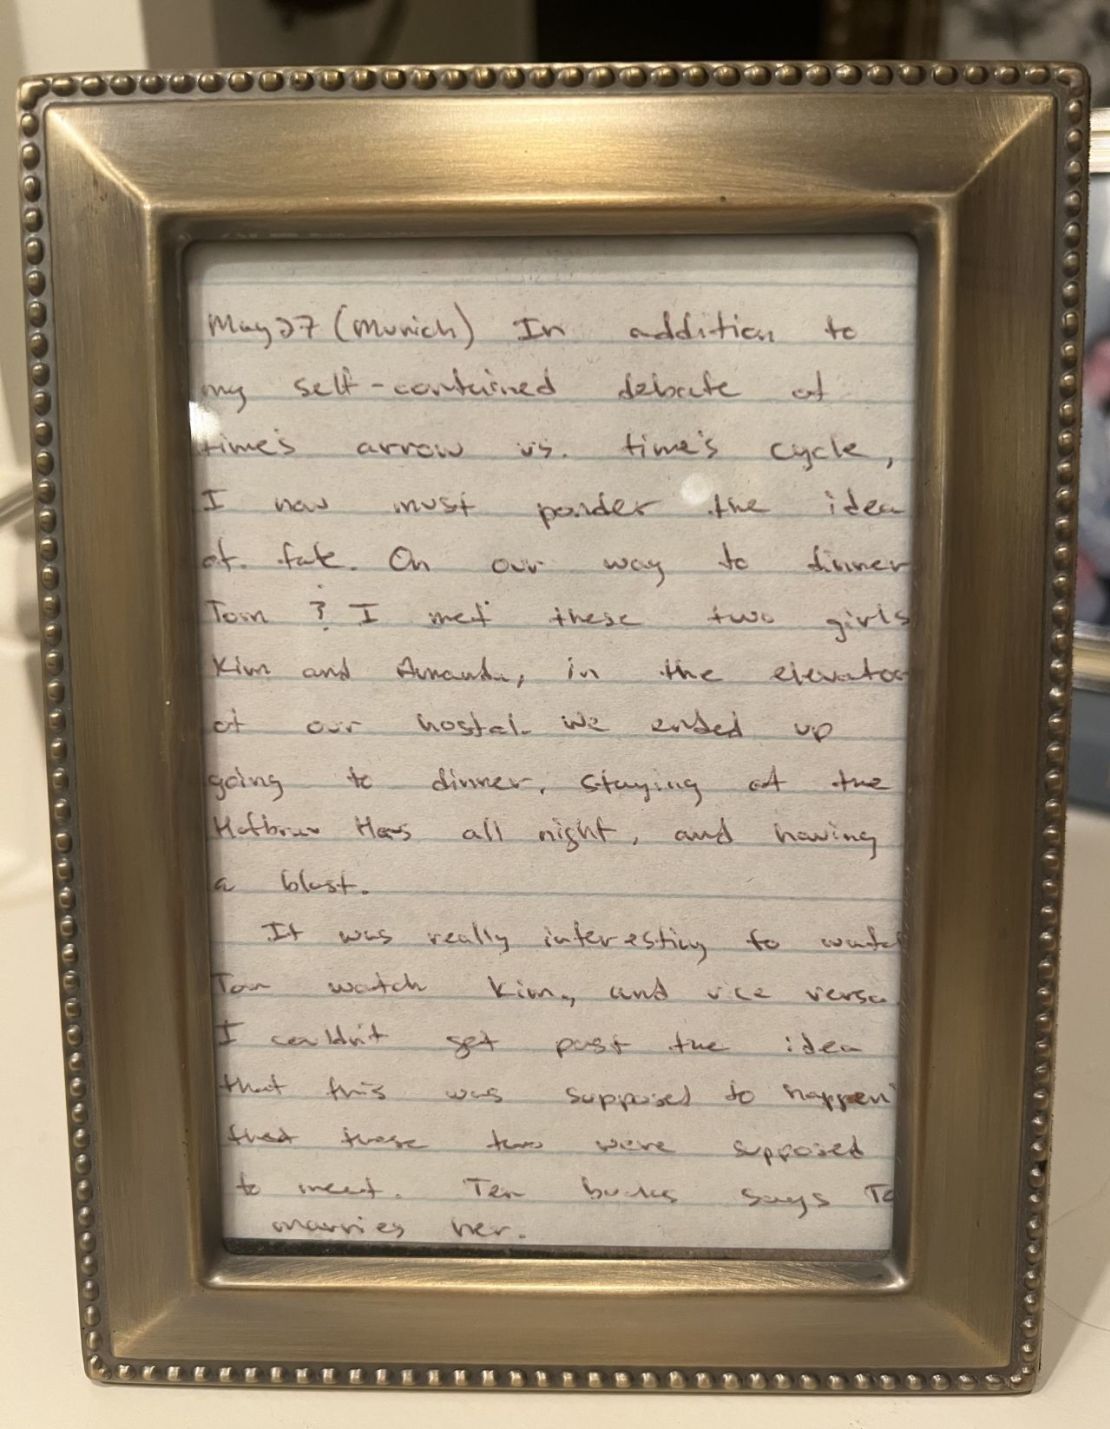 May 27 (Munich) In addition to
my self-contained debate of
time's arrow vs. time's cycle,
I now must ponder the idea
of fate. On our way to dinner
Tom & I met these two girls
Kim and Amanda, in the elevator
of our hostal. We ended up
going to dinner, staying at the
Hofbrau Haus all night, and having
a blast.
It was really interesting to watch
Tom watch Kim, and vice versa.
I couldn't get past the idea
that this was supposed to happen
that these two were supposed
to meet. Ten bucks says To
marries her.